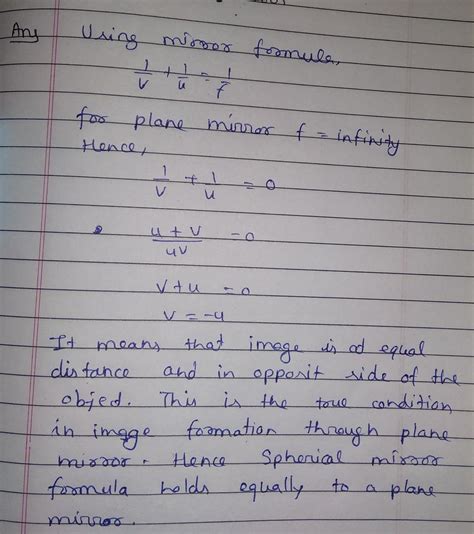 Ans Using mirror formula,
1/v + 1/u = 1/f
for plane mirror f = infinity
Hence,
1/v + 1/u = 0
u + v / uv = 0
v + u = 0
v = -u
It means that image is at equal
distance and in opposit side of the
object. This is the true condition
in image formation through plane
mirror. Hence Spherical mirror
formula holds equally to a plane
mirror.